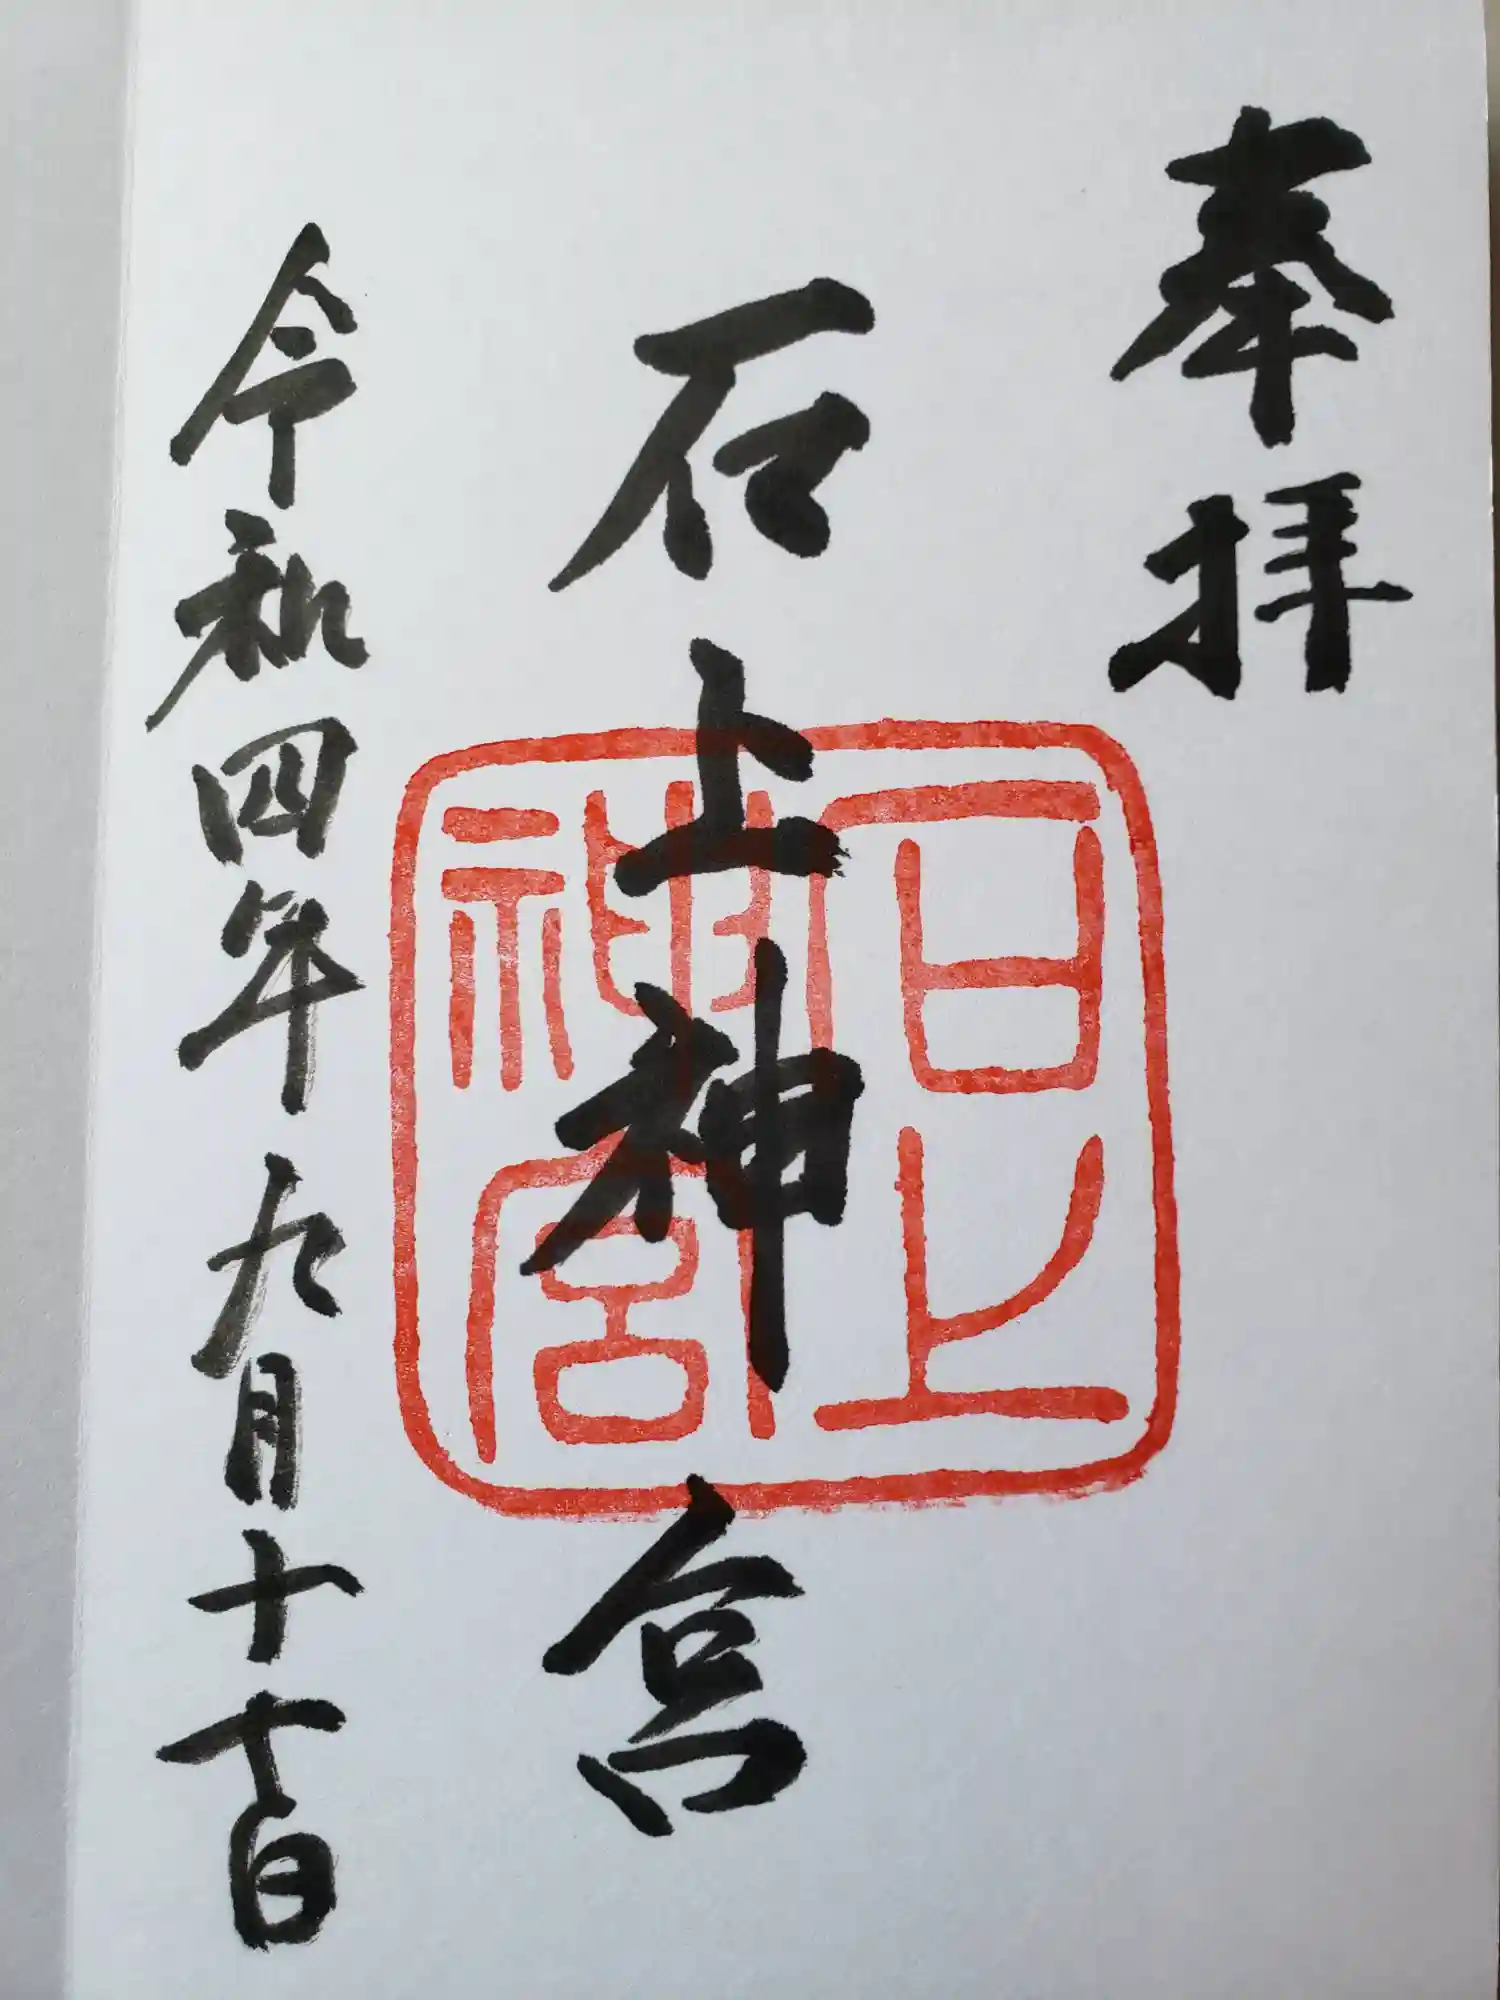 奉拝
石上神宮
石上
神宮
令和四年九月十七日